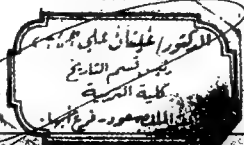 الدكتور/ علي
رئيس قسم التاريخ
كلية التربية
الملك سعود - فرع أبها